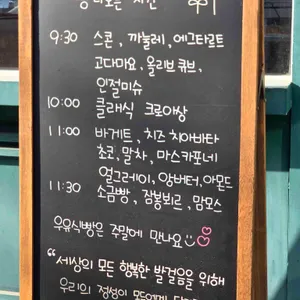 나오는 시간
9:30 스콘, 까눌레, 에그타르트
고다마요, 올리브 큐브,
인절미슈
10:00 클래식 크로아상
11:00 바게트, 치즈 치아바타
초코, 말차, 마스카포네
얼그레이, 앙버터, 아몬드
11:30 소금빵, 잠봉뵈르, 맘모스
우유식빵은 주말에 만나요
"세상의 모든 행복한 발걸음을 위해
우리의 정성이